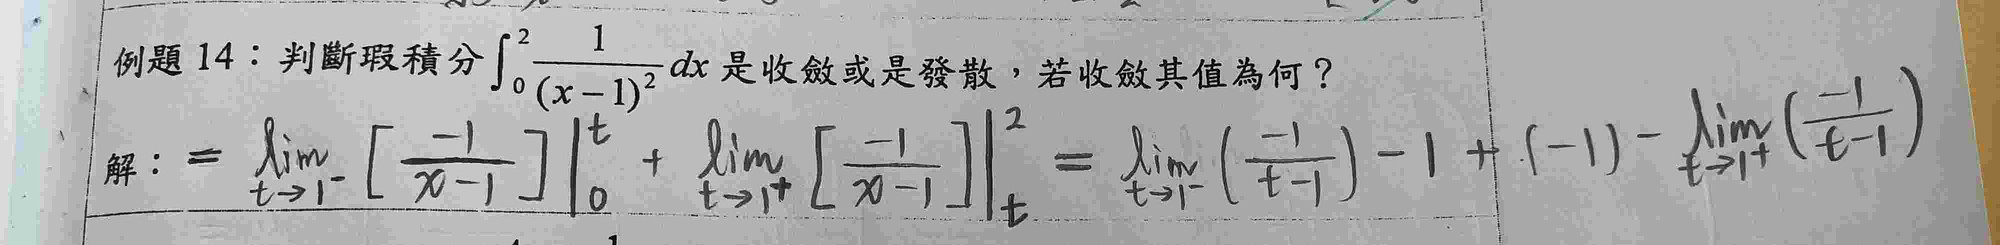 例題 14：判斷瑕積分 ∫₀² 1/(x−1)² dx 是收斂或是發散，若收斂其值為何？
解：= lim_{t→1⁻} [−1/(x−1)]|₀ᵗ + lim_{t→1⁺} [−1/(x−1)]|ₜ² = lim_{t→1⁻} (−1/(t−1)) − 1 + (−1) − lim_{t→1⁺} (−1/(t−1))